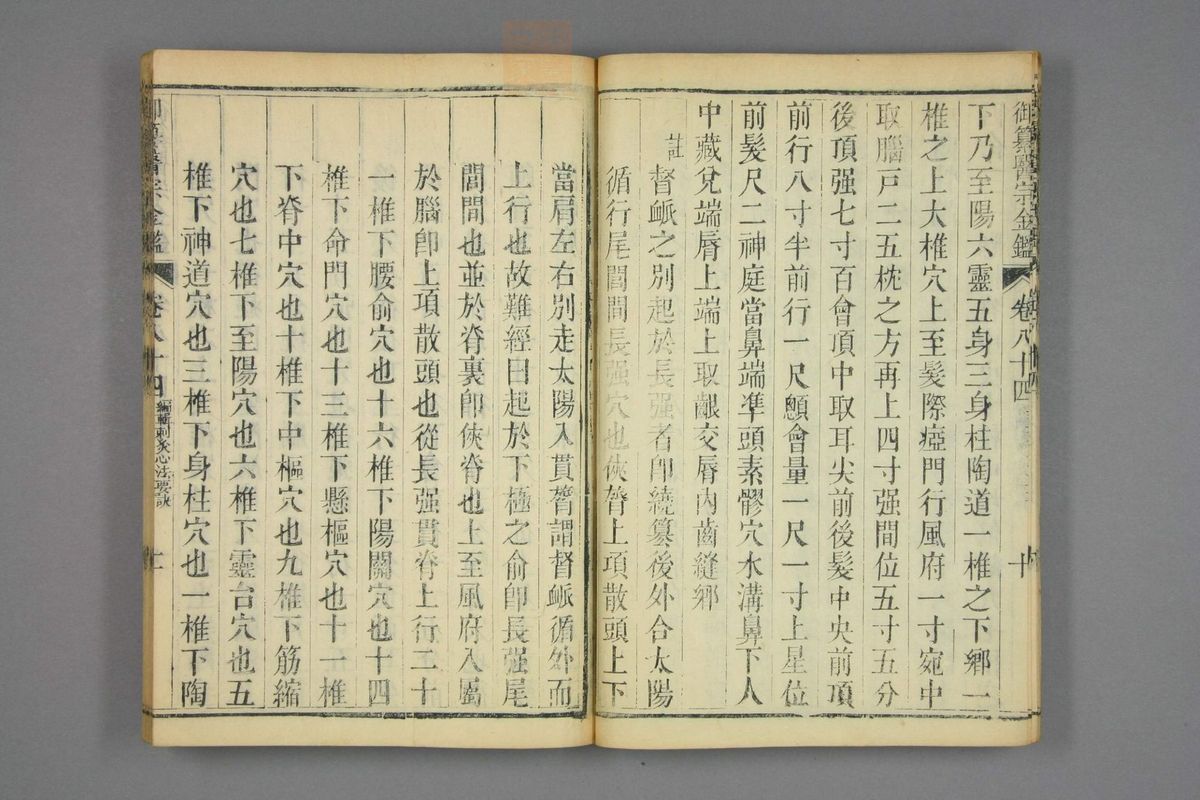 御纂醫宗金鑑 卷八十四 十
下乃至陽六靈五身三身柱陶道一椎之下鄉一
椎之上大椎穴上至髮際瘂門行風府一寸宛中
取腦戸二五枕之方再上四寸强間位五寸五分
後頂强七寸百會頂中取耳尖前後髮中央前頂
前行八寸半前行一尺顖會量一尺一寸上星位
前髮尺二神庭當鼻端準頭素髎穴水溝鼻下人
中藏兌端唇上端上取齦交唇內齒縫鄉
註
督脈之別起於長强者卽繞篡後外合太陽
循行尾閭間長强穴也俠膂上項散頭上下
當肩左右別走太陽入貫膂謂督脈循外而
上行也故難經曰起於下極之俞卽長强尾
閭間也並於脊裏卽俠脊也上至風府入屬
於腦卽上項散頭也從長强貫脊上行二十
一椎下腰俞穴也十六椎下陽關穴也十四
椎下命門穴也十三椎下懸樞穴也十一椎
下脊中穴也十椎下中樞穴也九椎下筋縮
穴也七椎下至陽穴也六椎下靈台穴也五
椎下神道穴也三椎下身柱穴也一椎下陶
御纂醫宗金鑑 卷八十四 編輯刺灸心法要訣 十一